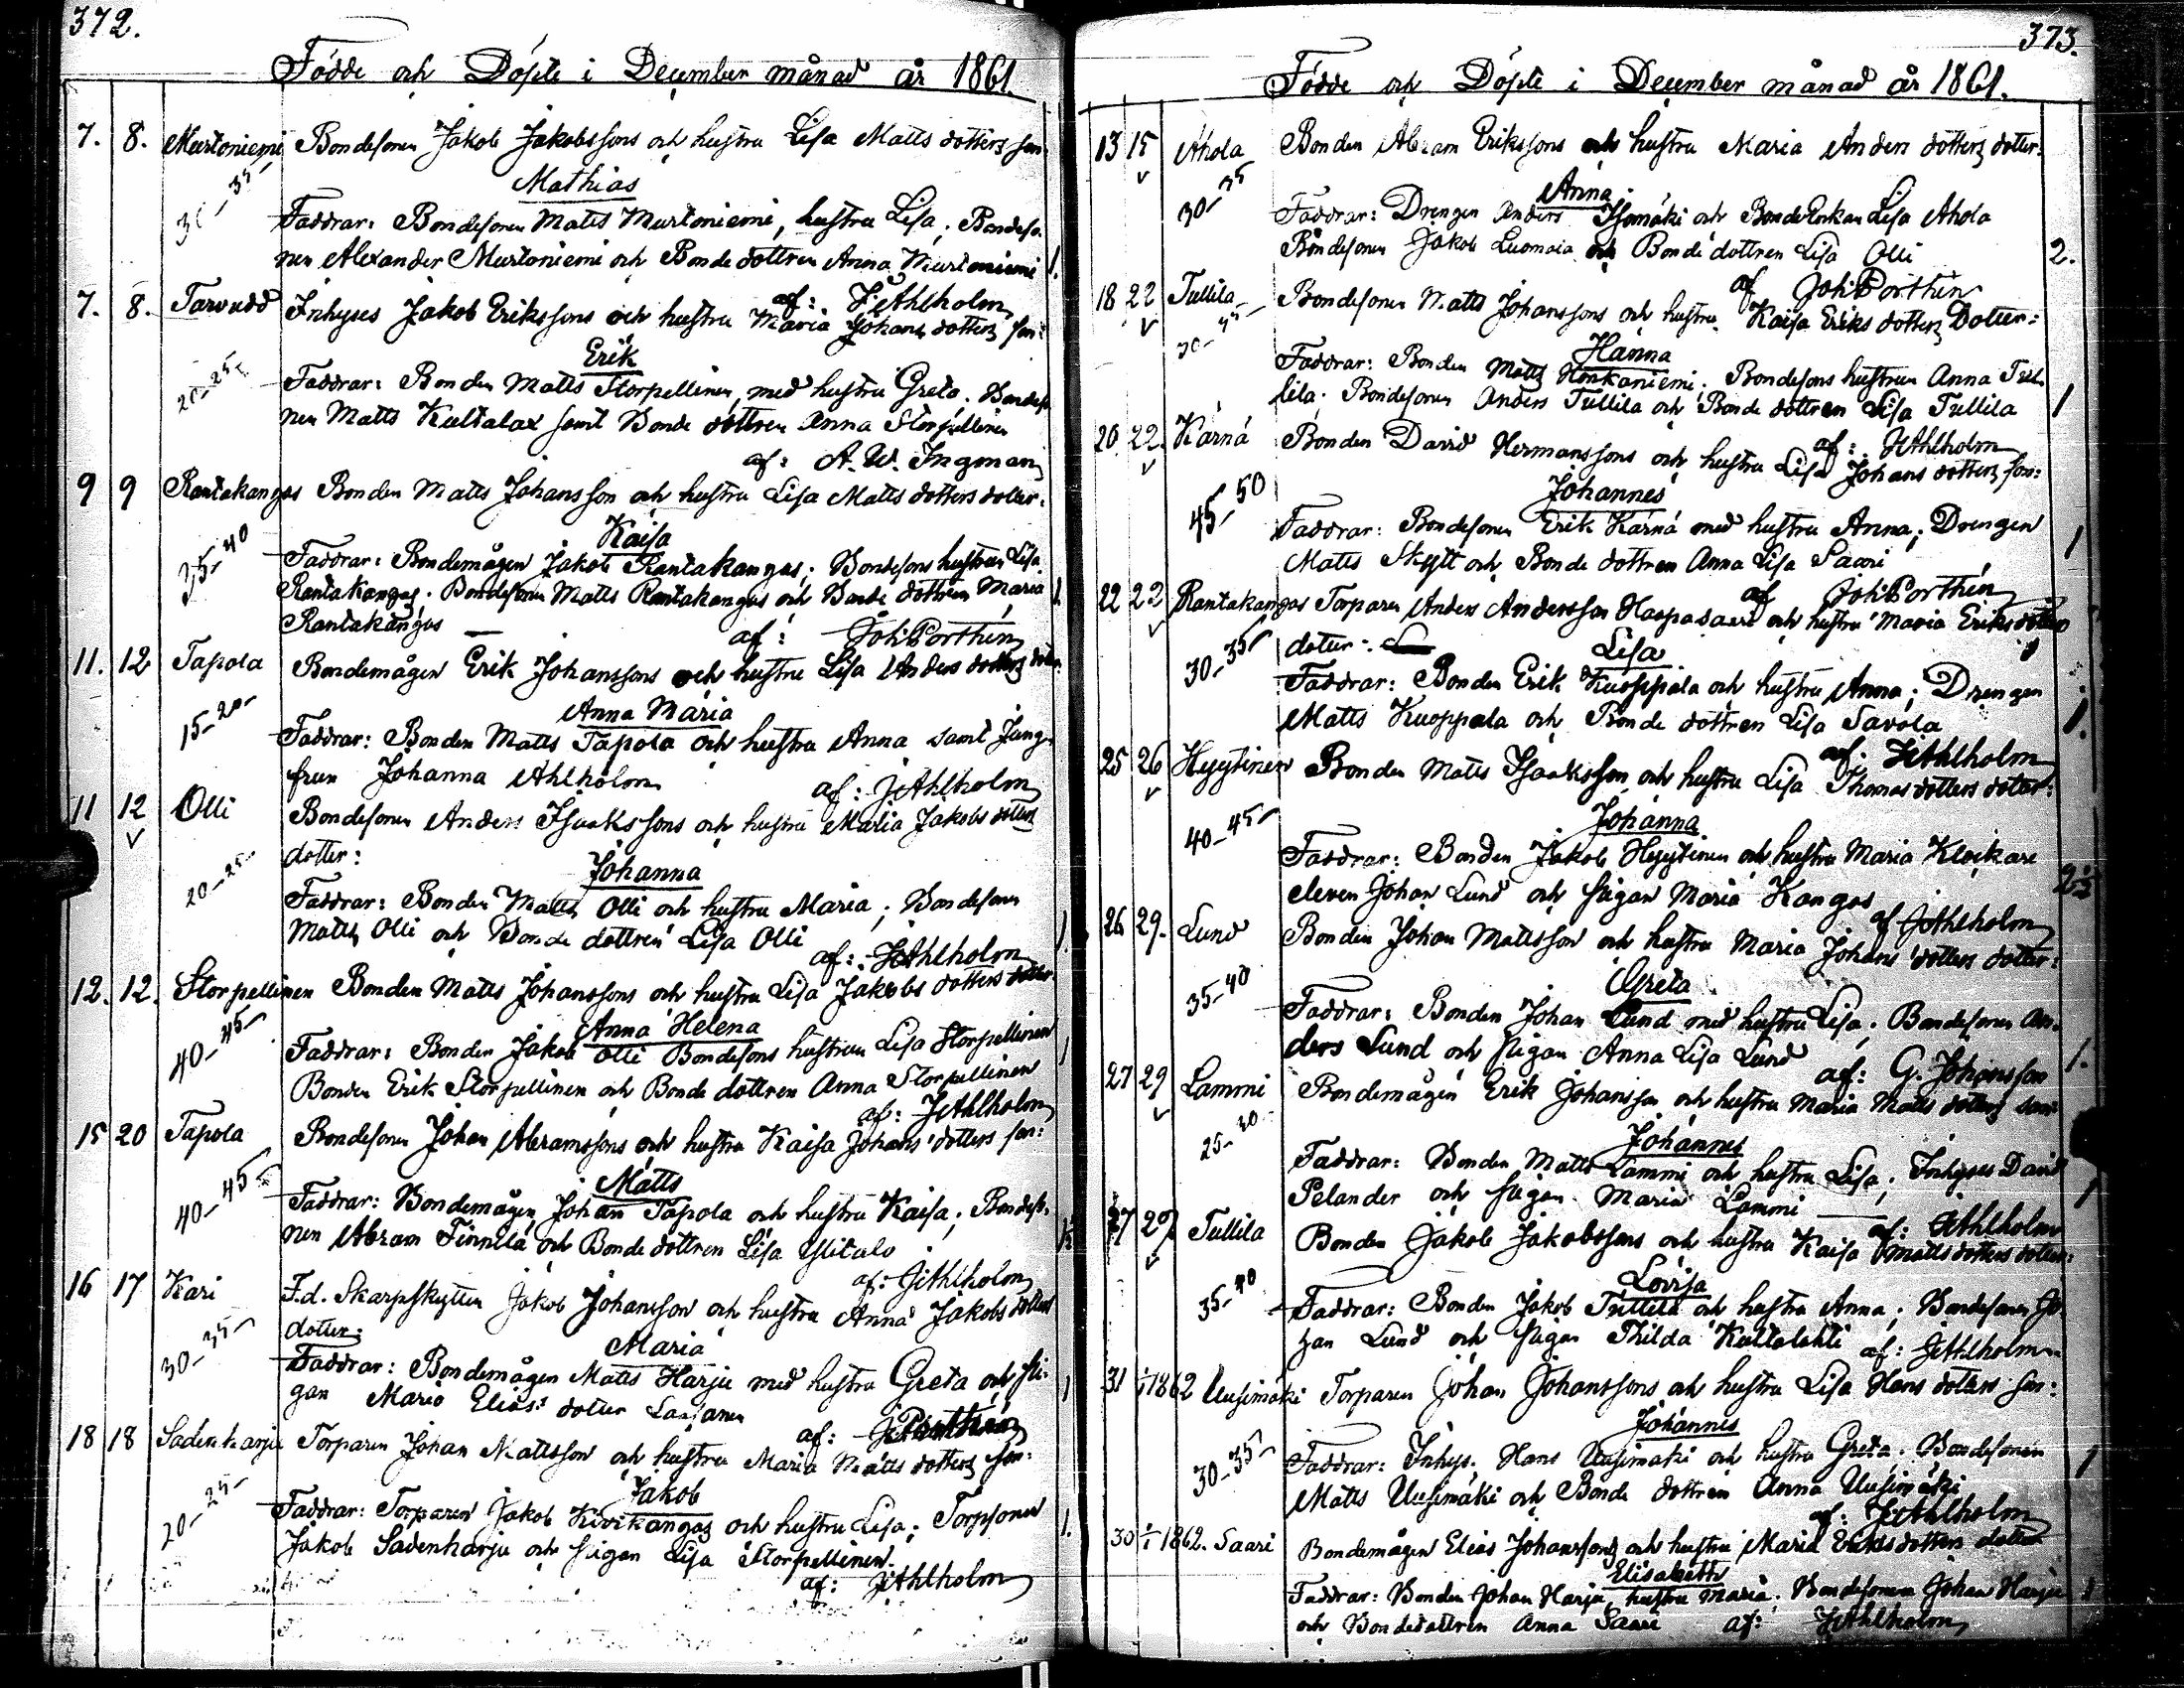 372.
Födde och Döpte i December månad år 1861.
7. 8. Murtoniemi Bondesonen Jakob Jakobssons och hustru Lisa Matts dotters son:
Mathias
30-35
Faddrar: Bondesonen Matts Murtoniemi, hustru Lisa; Bondeso-
nen Alexander Murtoniemi och Bonde dottren Anna Murtoniemi 1.
af: JAhlholm
7. 8. Tarvudd Inhyses Jakob Erikssons och hustru Maria Johans dotters son:
Erik
20-25
Faddrar: Bonden Matts Storpellinen, med hustru Greta. Bondeso
nen Matts Kultalax samt Bonde dottren Anna Storpellinen
af: A. W. Ingman
9 9 Rantakangas Bonden Matts Johansson och hustru Lisa Matts dotters dotter:
Kaisa
35-40
Faddrar: Bondemågen Jakob Rantakangas; Bondesons hustrun Lisa
Rantakangas. Bondesonen Matts Rantakangas och Bonde dottren Maria 1.
Rantakangas
af: JohPorthén
11. 12 Tapola Bondemågen Erik Johanssons och hustru Lisa Anders dotters dotter:
Anna Maria
15-20
Faddrar: Bonden Matts Tapola och hustru Anna samt Jung-
frun Johanna Ahlholm
af: JAhlholm
11 12 Olli Bondesonen Anders Isaakssons och hustru Maria Jakobs dotters
dotter:
Johanna
20-25
Faddrar: Bonden Matts Olli och hustru Maria; Bondesonen
Matts Olli och Bonde dottren Lisa Olli 1.
af: JAhlholm
12. 12. Storpellinen Bonden Matts Johanssons och hustru Lisa Jakobs dotters dotter:
Anna Helena
40-45
Faddrar: Bonden Jakob Olli Bondesons hustrun Lisa Storpellinen 1
Bonden Erik Storpellinen och Bonde dottren Anna Storpellinen
af: JAhlholm
15 20 Tapola Bondesonen Johan Abramssons och hustru Kaisa Johans dotters son:
Matts
40-45
Faddrar: Bondemågen Johan Tapola och hustru Kaisa; Bondeso-
nen Abram Finnilä och Bonde dottren Lisa Ylitalo
af: JAhlholm
16 17 Kari F.d. Skarpskytten Jakob Johansson och hustru Anna Jakobs dotters
dotter:
Maria
30-35
Faddrar: Bondemågen Matts Harju med hustru Greta och Pi-
gan Maria Elias dotter 1
af: JPorthén
18 18 Sadenharju Torparen Johan Mattsson och hustru Maria Matts dotters son:
Jakob
20-25
Faddrar: Torparen Jakob Kivikangas och hustru Lisa; Torpsonen 1.
Jakob Sadenharju och Pigan Lisa Storpellinen.
af: JAhlholm
373.
Födde och Döpte i December månad år 1861.
13 15 Ahola Bonden Abram Erikssons och hustru Maria Anders dotters dotter:
Anna
30-35
Faddrar: Drengen Anders Isomäki och BondeEnkan Lisa Ahola
Bondesonen Jakob Luomala och Bonde dottren Lisa Olli 2.
af JohPorthén
18 22 Tullila Bondesonen Matts Johanssons och hustru Kaisa Eriks dotters Dotter:
Hanna
Faddrar: Bonden Matts Honkaniemi. Bondesons hustrun Anna Tul-
lila. Bondesonen Anders Tullila och Bonde dottren Lisa Tullila 1
af: JAhlholm
20 22. Kärnä Bonden David Hermanssons och hustru Lisa Johans dotters son:
Johannes
45-50
Faddrar: Bondesonen Erik Kärnä med hustru Anna; Drengen
Matts Skytt och Bonde dottren Anna Lisa Saari 1
af JohPorthén
22 22 Rantakangas Torparen Anders Andersson Haapasaari och hustru Maria Eriksdotters
dotter:
Lisa
30-35
Faddrar: Bonden Erik Kuoppala och hustru Anna; Drengen
Matts Kuoppala och Bonde dottren Lisa Savola 1.
af. JAhlholm
25 26 Hyytinen Bonden Matts Isaaksson och hustru Lisa Thomas dotters dotter:
Johanna
40-45
Faddrar: Bonden Jakob Hyytinen och hustru Maria Klockare
eleven Johan Lund och Pigan Maria Kangas
af JAhlholm
26 29. Lund Bonden Johan Mattsson och hustru Maria Johans dotters dotter:
Greta
35-40
Faddrar: Bonden Johan Lund med hustru Lisa; Bondesonen An-
ders Lund och Pigan Anna Lisa Lund 1.
af: G. Johansson
27 29 Lammi Bondemågen Erik Johansson och hustru Maria Matts dotters son:
Johannes
25-30
Faddrar: Bonden Matts Lammi och hustru Lisa; Inhyses David
Pelander och Pigan Maria Lammi 1
af: JAhlholm
27 29 Tullila Bonden Jakob Jakobssons och hustru Kaisa Matts dotters dotter:
Lovisa
35-40
Faddrar: Bonden Jakob Tullila och hustru Anna; Bondesonen Jo-
han Lund och Pigan Thilda Kultalahti
af: JAhlholm
31 1/1 1862 Uusimäki Torparen Johan Johanssons och hustru Lisa Hans dotters son:
Johannes
30-35
Faddrar: Inhys. Hans Uusimäki och hustru Greta; Bondesonen 1
Matts Uusimäki och Bonde dottren Anna Uusimäki
af: JAhlholm
30 1/1 1862. Saari Bondemågen Elias Johanssons och hustru Maria Eriksdotters dotter
Elisabeth
Faddrar: Bonden Johan Harju, hustru Maria; Bondesonen Johan Harju 1
och Bondedottren Anna Saari af: JAhlholm